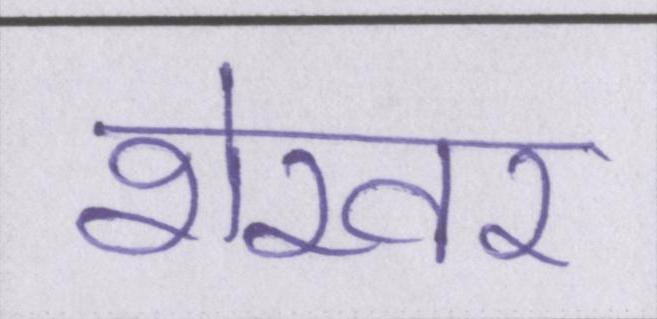 शेखर